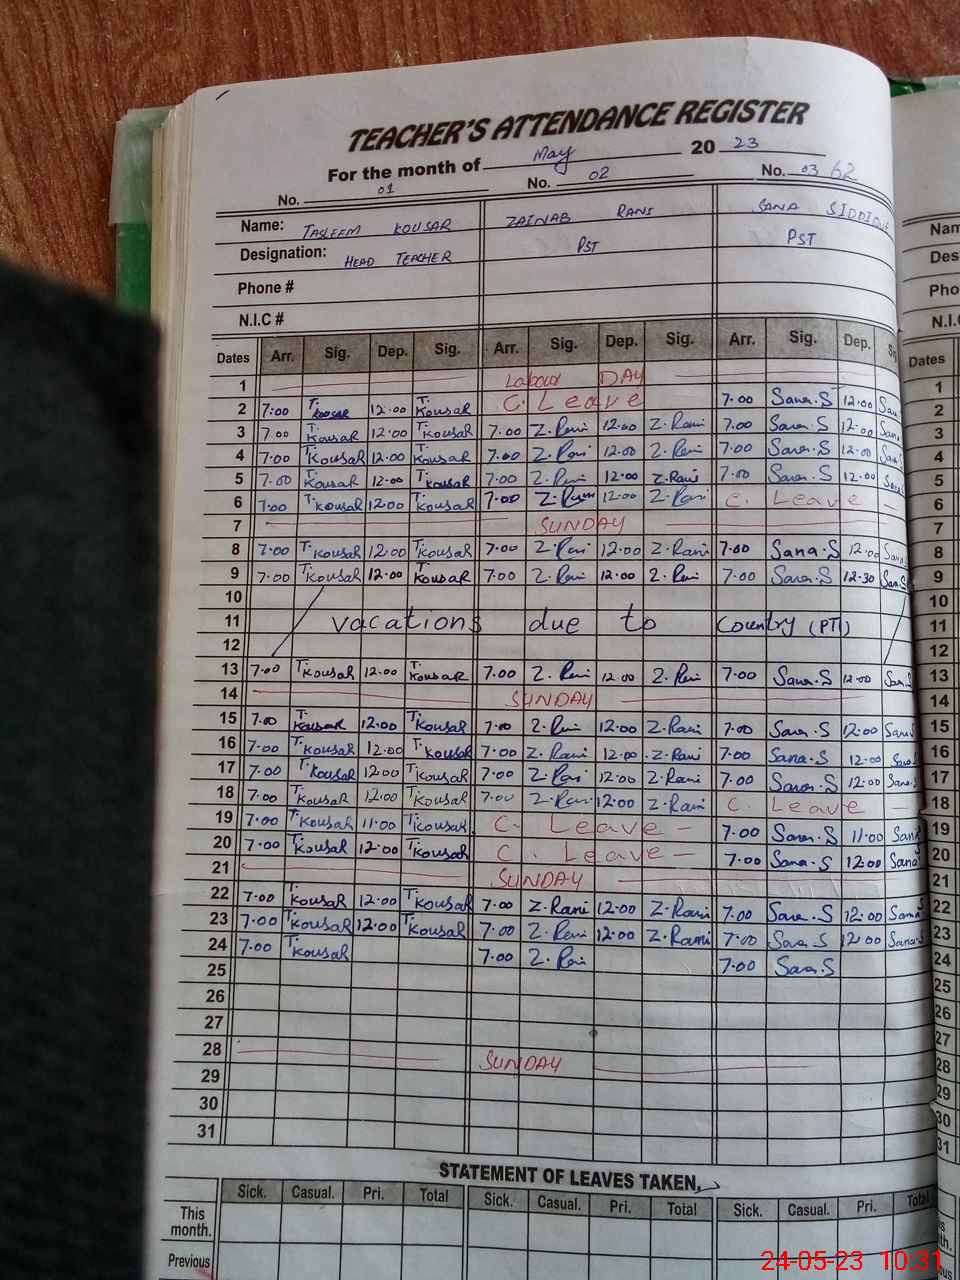 TEACHER'S ATTENDANCE REGISTER
For the month of May 2023
No. 01 No. 02 No. 03 62
Name: TASLEEM KOUSAR ZAINAB RANI SANA SIDDIQUE
Designation: HEAD TEACHER PST PST
Phone #
N.I.C #
Dates Arr. Sig. Dep. Sig. Arr. Sig. Dep. Sig. Arr. Sig. Dep.
1 Labour DAY
2 7:00 T.Kousar 12.00 T.Kousar C. Leave 7.00 Sana.S 12.00 Sana
3 7.00 T.Kousar 12.00 T.Kousar 7.00 Z.Rani 12.00 Z.Rani 7.00 Sana.S 12.00 Sana
4 7.00 T.Kousar 12.00 T.Kousar 7.00 Z.Rani 12.00 Z.Rani 7.00 Sana.S 12.00 Sana
5 7.00 T.Kousar 12.00 T.Kousar 7.00 Z.Rani 12.00 Z.Rani 7.00 Sana.S 12.00 Sana
6 7.00 T.Kousar 12.00 T.Kousar 7.00 Z.Rani 12.00 Z.Rani C. Leave
7 SUNDAY
8 7.00 T.Kousar 12.00 T.Kousar 7.00 Z.Rani 12.00 Z.Rani 7.00 Sana.S 12.00 Sana
9 7.00 T.Kousar 12.00 T.Kousar 7.00 Z.Rani 12.00 Z.Rani 7.00 Sana.S 12.30 Sana.S
10
11 vacations due to country (PTI)
12
13 7.00 T.Kousar 12.00 T.Kousar 7.00 Z.Rani 12.00 Z.Rani 7.00 Sana.S 12.00 Sana.S
14 SUNDAY
15 7.00 T.Kousar 12.00 T.Kousar 7.00 Z.Rani 12.00 Z.Rani 7.00 Sana.S 12.00 Sana.S
16 7.00 T.Kousar 12.00 T.Kousar 7.00 Z.Rani 12.00 Z.Rani 7.00 Sana.S 12.00 Sana.S
17 7.00 T.Kousar 12.00 T.Kousar 7.00 Z.Rani 12.00 Z.Rani 7.00 Sana.S 12.00 Sana.S
18 7.00 T.Kousar 12.00 T.Kousar 7.00 Z.Rani 12.00 Z.Rani C. Leave
19 7.00 T.Kousar 11.00 T.Kousar C. Leave 7.00 Sana.S 11.00 Sana.S
20 7.00 T.Kousar 12.00 T.Kousar C. Leave 7.00 Sana.S 12.00 Sana
21 SUNDAY
22 7.00 T.Kousar 12.00 T.Kousar 7.00 Z.Rani 12.00 Z.Rani 7.00 Sana.S 12.00 Sana.S
23 7.00 T.Kousar 12.00 T.Kousar 7.00 Z.Rani 12.00 Z.Rani 7.00 Sana.S 12.00 Sana.S
24 7.00 T.Kousar 7.00 Z.Rani 7.00 Sana.S
25
26
27
28 SUNDAY
29
30
31
STATEMENT OF LEAVES TAKEN
Sick. Casual. Pri. Total Sick. Casual. Pri. Total Sick. Casual. Pri. Total
This month.
Previous
Dates
1
2
3
4
5
6
7
8
9
10
11
12
13
14
15
16
17
18
19
20
21
22
23
24
25
26
27
28
29
30
31
24-05-23 10:31